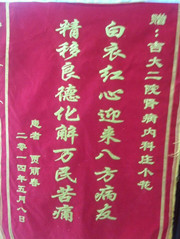 赠：吉大二院肾病内科庄小花
白衣红心迎来八方病友
精移良德化解万民苦痛
患者 贾丽春
二零一四年五月八日